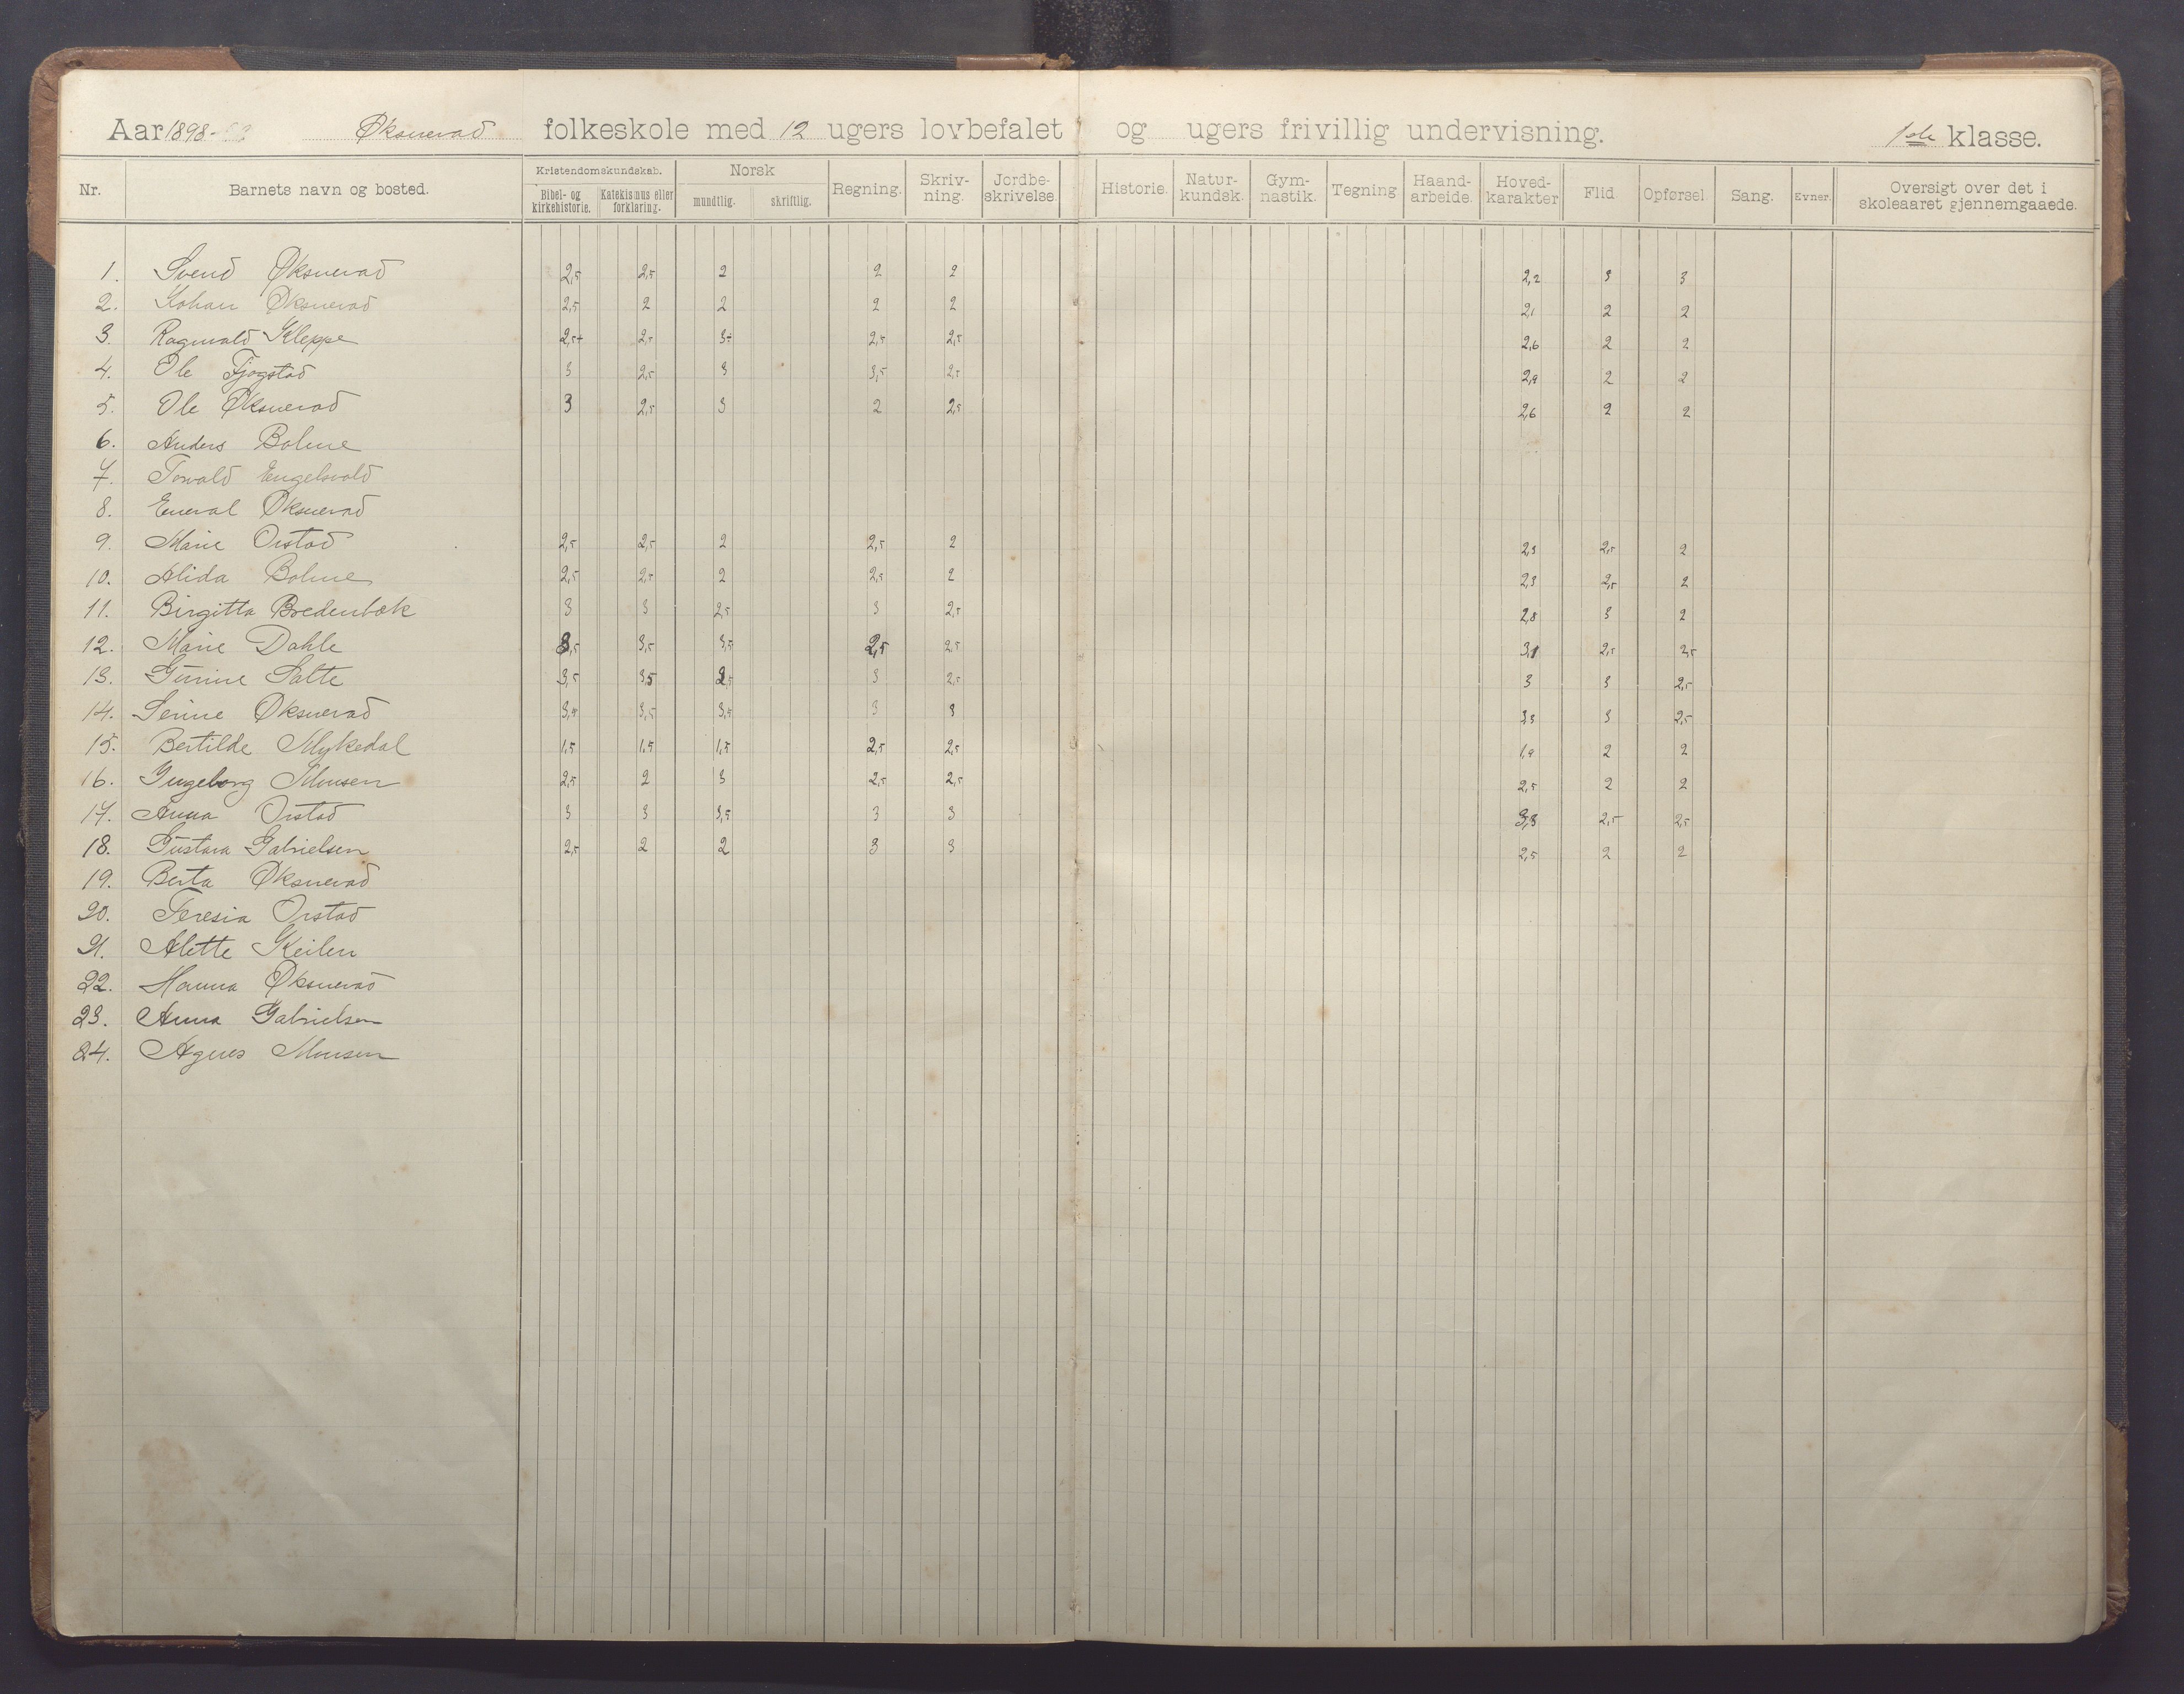 Aar 1898- Øksnevad folkeskole med 12 ugers lovbefalet og ugers frivillig undervisning. 1ste klasse.
Nr. Barnets navn og bosted. Kristendomskundskab. Norsk Regning. Skriv- Jordbe- Historie. Natur- Gym- Tegning Haand- Hoved- Flid. Opførsel. Sang. Evner. Oversigt over det i
Bibel- og Katekismus eller mundtlig. skriftlig. ning. skrivelse. kundsk. nastik. arbeide. karakter skoleaaret gjennemgaaede.
kirkehistorie. forklaring.
1. Svend Øksnevad 2,5 2,5 2 2 2 2,2 3 3
2. Johan Øksnevad 2,5 2 2 2 2 2,1 2 2
3. Ragnvald Kleppe 2,5+ 2,5 3÷ 2,5 2,5 2,6 2 2
4. Ole Fjogstad 3 2,5 3 3,5 2,5 2,9 2 2
5. Ole Øksnevad 3 2,5 3 2 2,5 2,6 2 2
6. Anders Bolme
7. Torvald Engelsvold
8. Eneval Øksnevad
9. Marie Orstad 2,5 2,5 2 2,5 2 2,3 2,5 2
10. Alida Bolme 2,5 2,5 2 2,5 2 2,3 2,5 2
11. Birgitta Bredenbæk 3 3 2,5 3 2,5 2,8 3 2
12. Marie Dahle 3,5 3,5 3,5 2,5 2,5 3,1 2,5 2,5
13. Gurine Salte 3,5 3,5 2,5 3 2,5 3 3 2,5
14. Serine Øksnevad 3,5 3,5 3,5 3 3 3,3 3 2,5
15. Bertilde Mykedal 1,5 1,5 1,5 2,5 2,5 1,9 2 2
16. Ingeborg Monsen 2,5 2 3 2,5 2,5 2,5 2 2
17. Anna Orstad 3 3 3,5 3 3 3,3 2,5 2,5
18. Gustava Gabrielsen 2,5 2 2 3 3 2,5 2 2
19. Berta Øksnevad
20. Teresia Orstad
21. Alette Keilen
22. Hanna Øksnevad
23. Anna Gabrielsen
24. Agnes Monsen